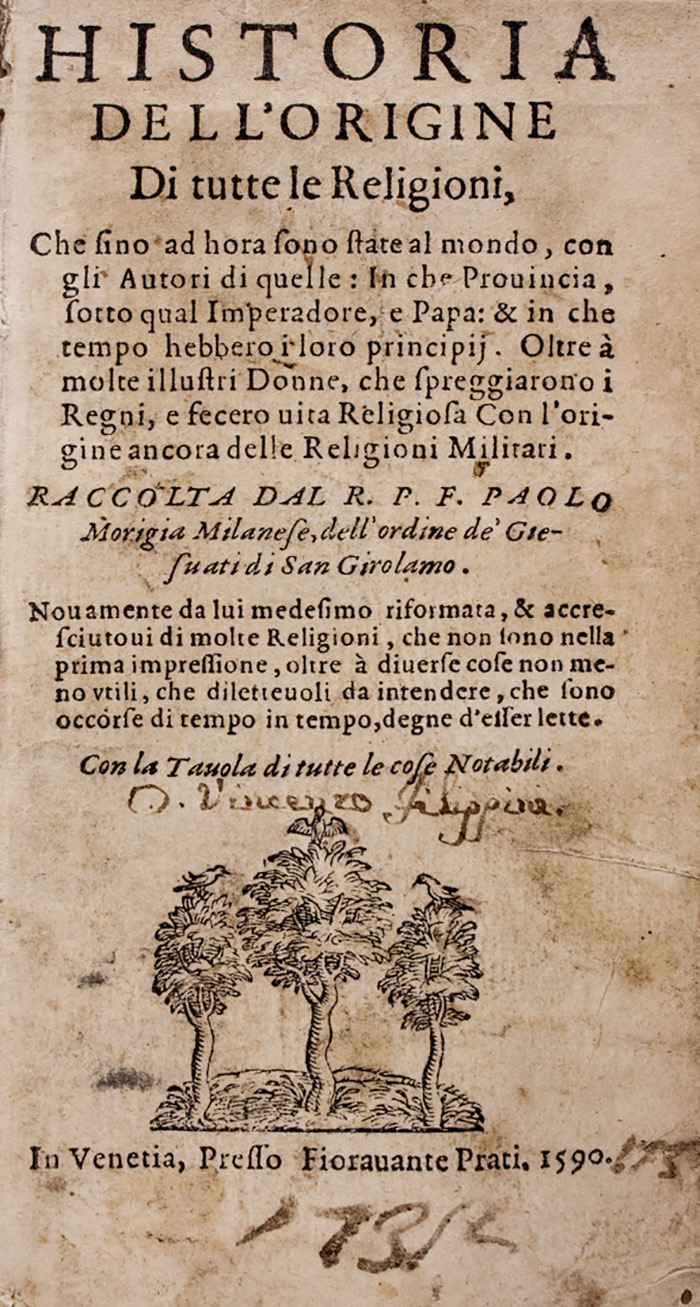 HISTORIA
DELL'ORIGINE
Di tutte le Religioni,
Che ſino ad hora ſono ſtate al mondo, con
gli Autori di quelle: In che Prouincia,
ſotto qual Imperadore, e Papa: & in che
tempo hebbero i loro principij. Oltre à
molte illuſtri Donne, che ſpreggiarono i
Regni, e fecero uita Religioſa Con l'ori-
gine ancora delle Religioni Militari.
RACCOLTA DAL R. P. F. PAOLO
Morigia Milaneſe, dell'ordine de' Gie-
ſuati di San Girolamo.
Nouamente da lui medeſimo riformata, & accre-
ſciutoui di molte Religioni, che non ſono nella
prima impreſſione, oltre à diuerſe coſe non me-
no vtili, che diletteuoli da intendere, che ſono
occorſe di tempo in tempo, degne d'eſſer lette.
Con la Tauola di tutte le coſe Notabili.
D. Vincenzo
In Venetia, Preſſo Fiorauante Prati. 1590.